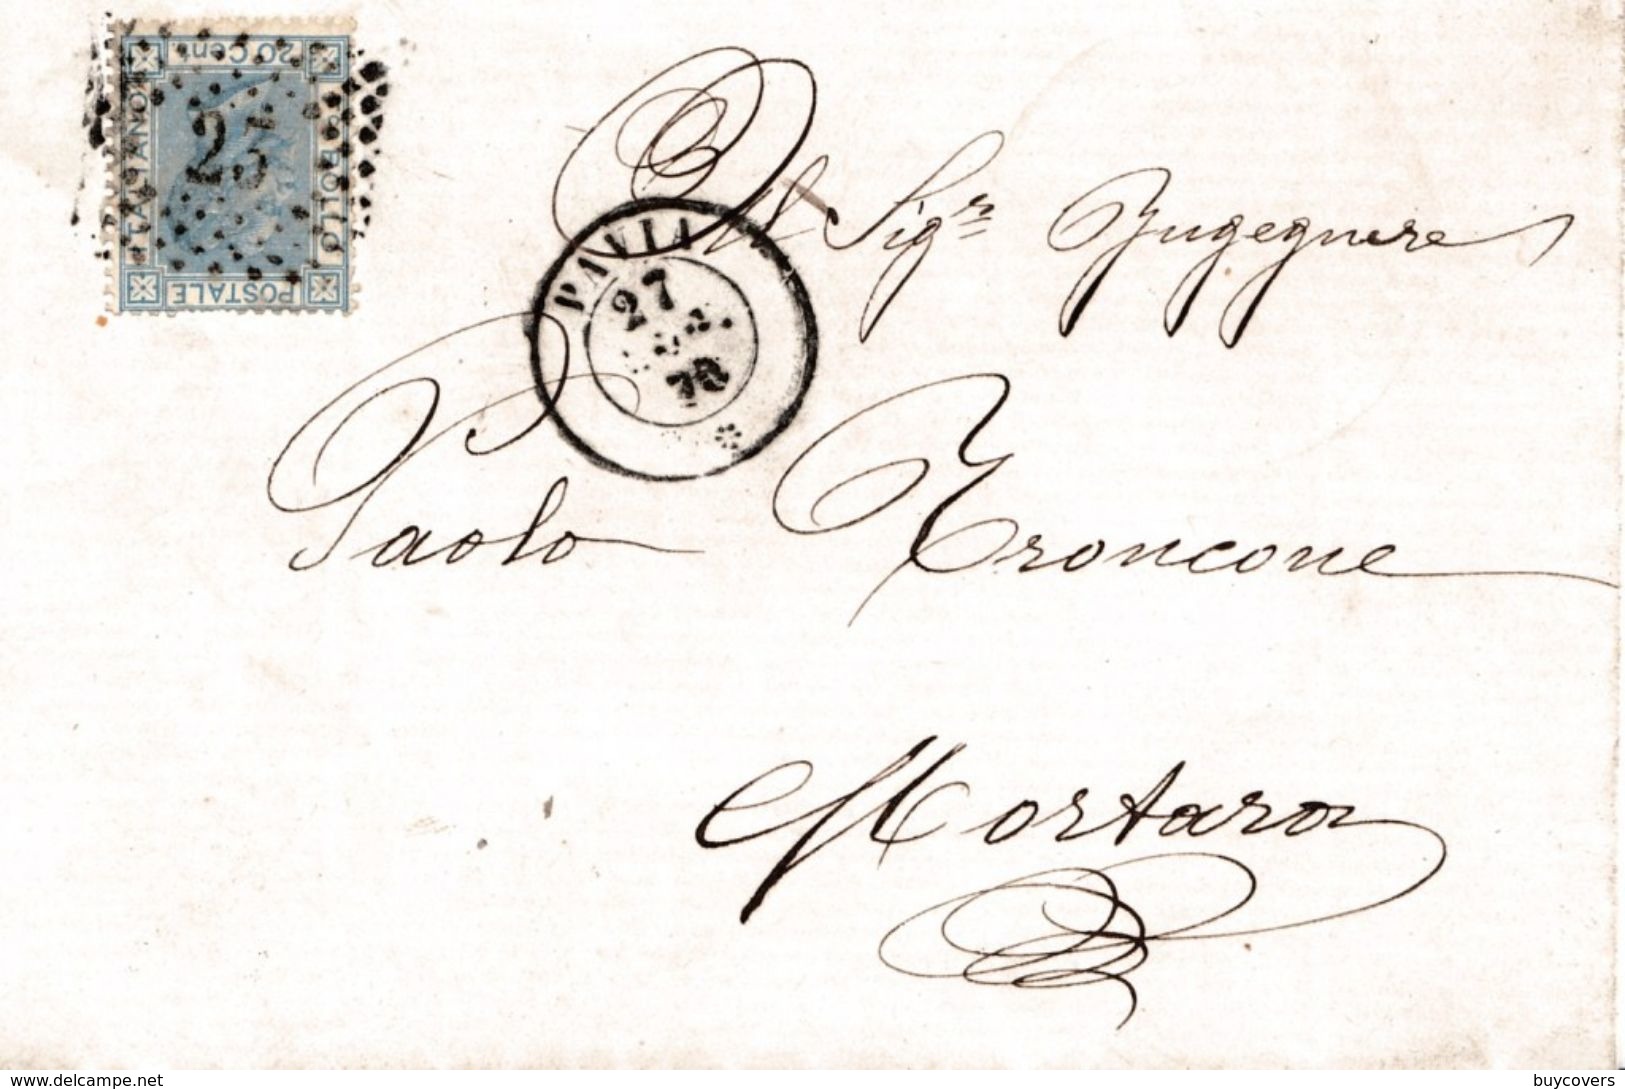 20 Cent
ITALIANO
BOLLO
POSTALE
25
PAVIA
27
70
Al Sigr Ingegnere
Paolo Troncone
Mortara
www.delcampe.net
buycovers